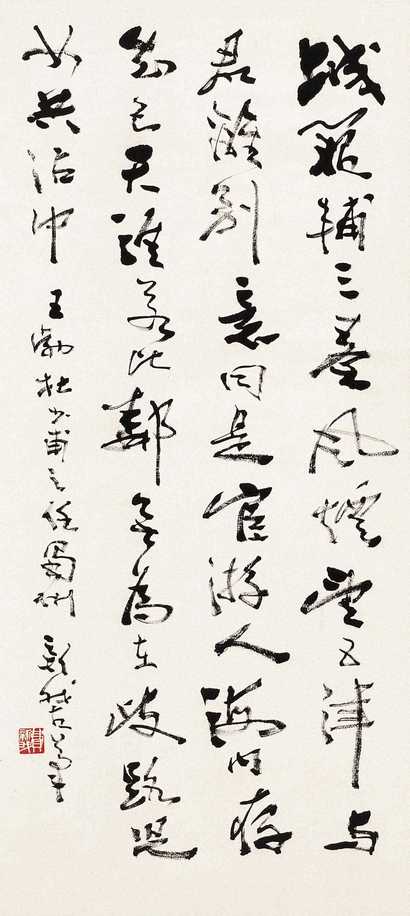 城闕輔三秦風煙望五津与
君離別意同是宦游人海内存
知己天涯若比鄰無為在歧路児
女共沾巾 王勃杜少甫之任蜀州